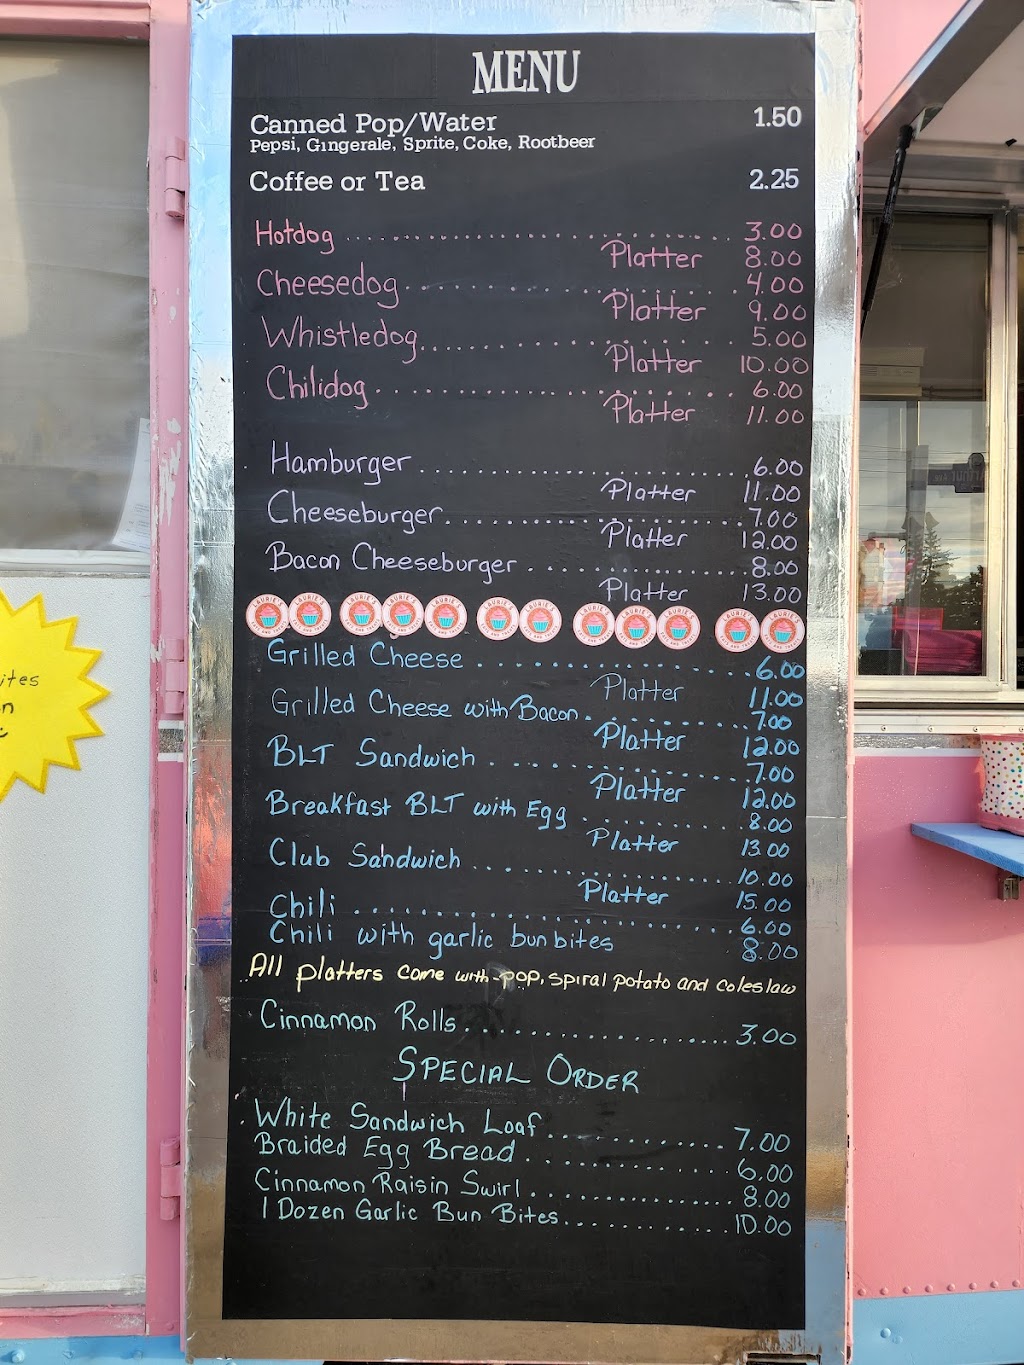 MENU
Canned Pop/Water 1.50
Pepsi, Gingerale, Sprite, Coke, Rootbeer
Coffee or Tea 2.25
Hotdog 3.00
Platter 8.00
Cheesedog 4.00
Platter 9.00
Whistledog 5.00
Platter 10.00
Chilidog 6.00
Platter 11.00
Hamburger 6.00
Platter 11.00
Cheeseburger 7.00
Platter 12.00
Bacon Cheeseburger 8.00
Platter 13.00
LAURIE'S
Grilled Cheese 6.00
Platter 11.00
Grilled Cheese with Bacon 7.00
Platter 12.00
BLT Sandwich 7.00
Platter 12.00
Breakfast BLT with Egg 8.00
Platter 13.00
Club Sandwich 10.00
Platter 15.00
Chili 6.00
Chili with garlic bun bites 8.00
All platters come with pop, spiral potato and coleslaw
Cinnamon Rolls 3.00
SPECIAL ORDER
White Sandwich Loaf 7.00
Braided Egg Bread 6.00
Cinnamon Raisin Swirl 8.00
1 Dozen Garlic Bun Bites 10.00